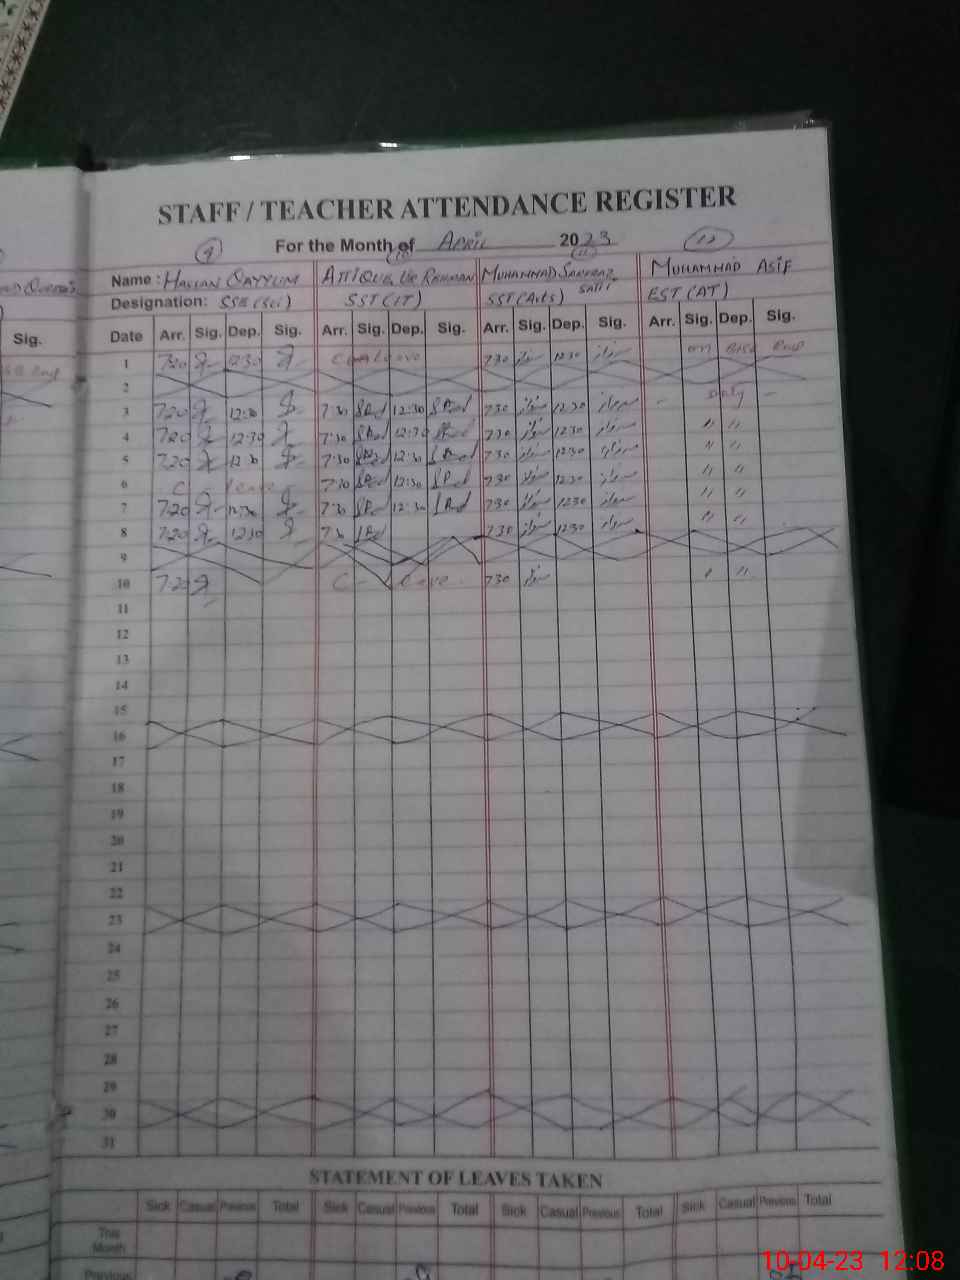 STAFF / TEACHER ATTENDANCE REGISTER
For the Month of April 2023
9 10 11 12
Name: Hassan Qayyum Attique Ur Rehman Muhammad Sarfraz Satti Muhammad Asif
Designation: SSE (Sci) SST (IT) SST (Arts) EST (AT)
Sig. Date Arr. Sig. Dep. Sig. Arr. Sig. Dep. Sig. Arr. Sig. Dep. Sig. Arr. Sig. Dep. Sig.
1 7:20 12:30 leave 730 1230 on
2 Duty
3 7:20 12:30 7:30 12:30 730 1230 - -
4 7:20 12:30 7:30 12:30 730 1230 " "
5 7:20 12:30 7:30 12:30 730 1230 " "
6 C leave 7:30 12:30 730 1230 " "
7 7:20 12:30 7:30 12:30 730 1230 " "
8 7:20 1230 7:30 730 1230 " "
9
10 7:20 C - leave 730 " "
11
12
13
14
15
16
17
18
19
20
21
22
23
24
25
26
27
28
29
30
31
STATEMENT OF LEAVES TAKEN
Sick Casual Previous Total Sick Casual Previous Total Sick Casual Previous Total Sick Casual Previous Total
This Month
Previous
10-04-23 12:08